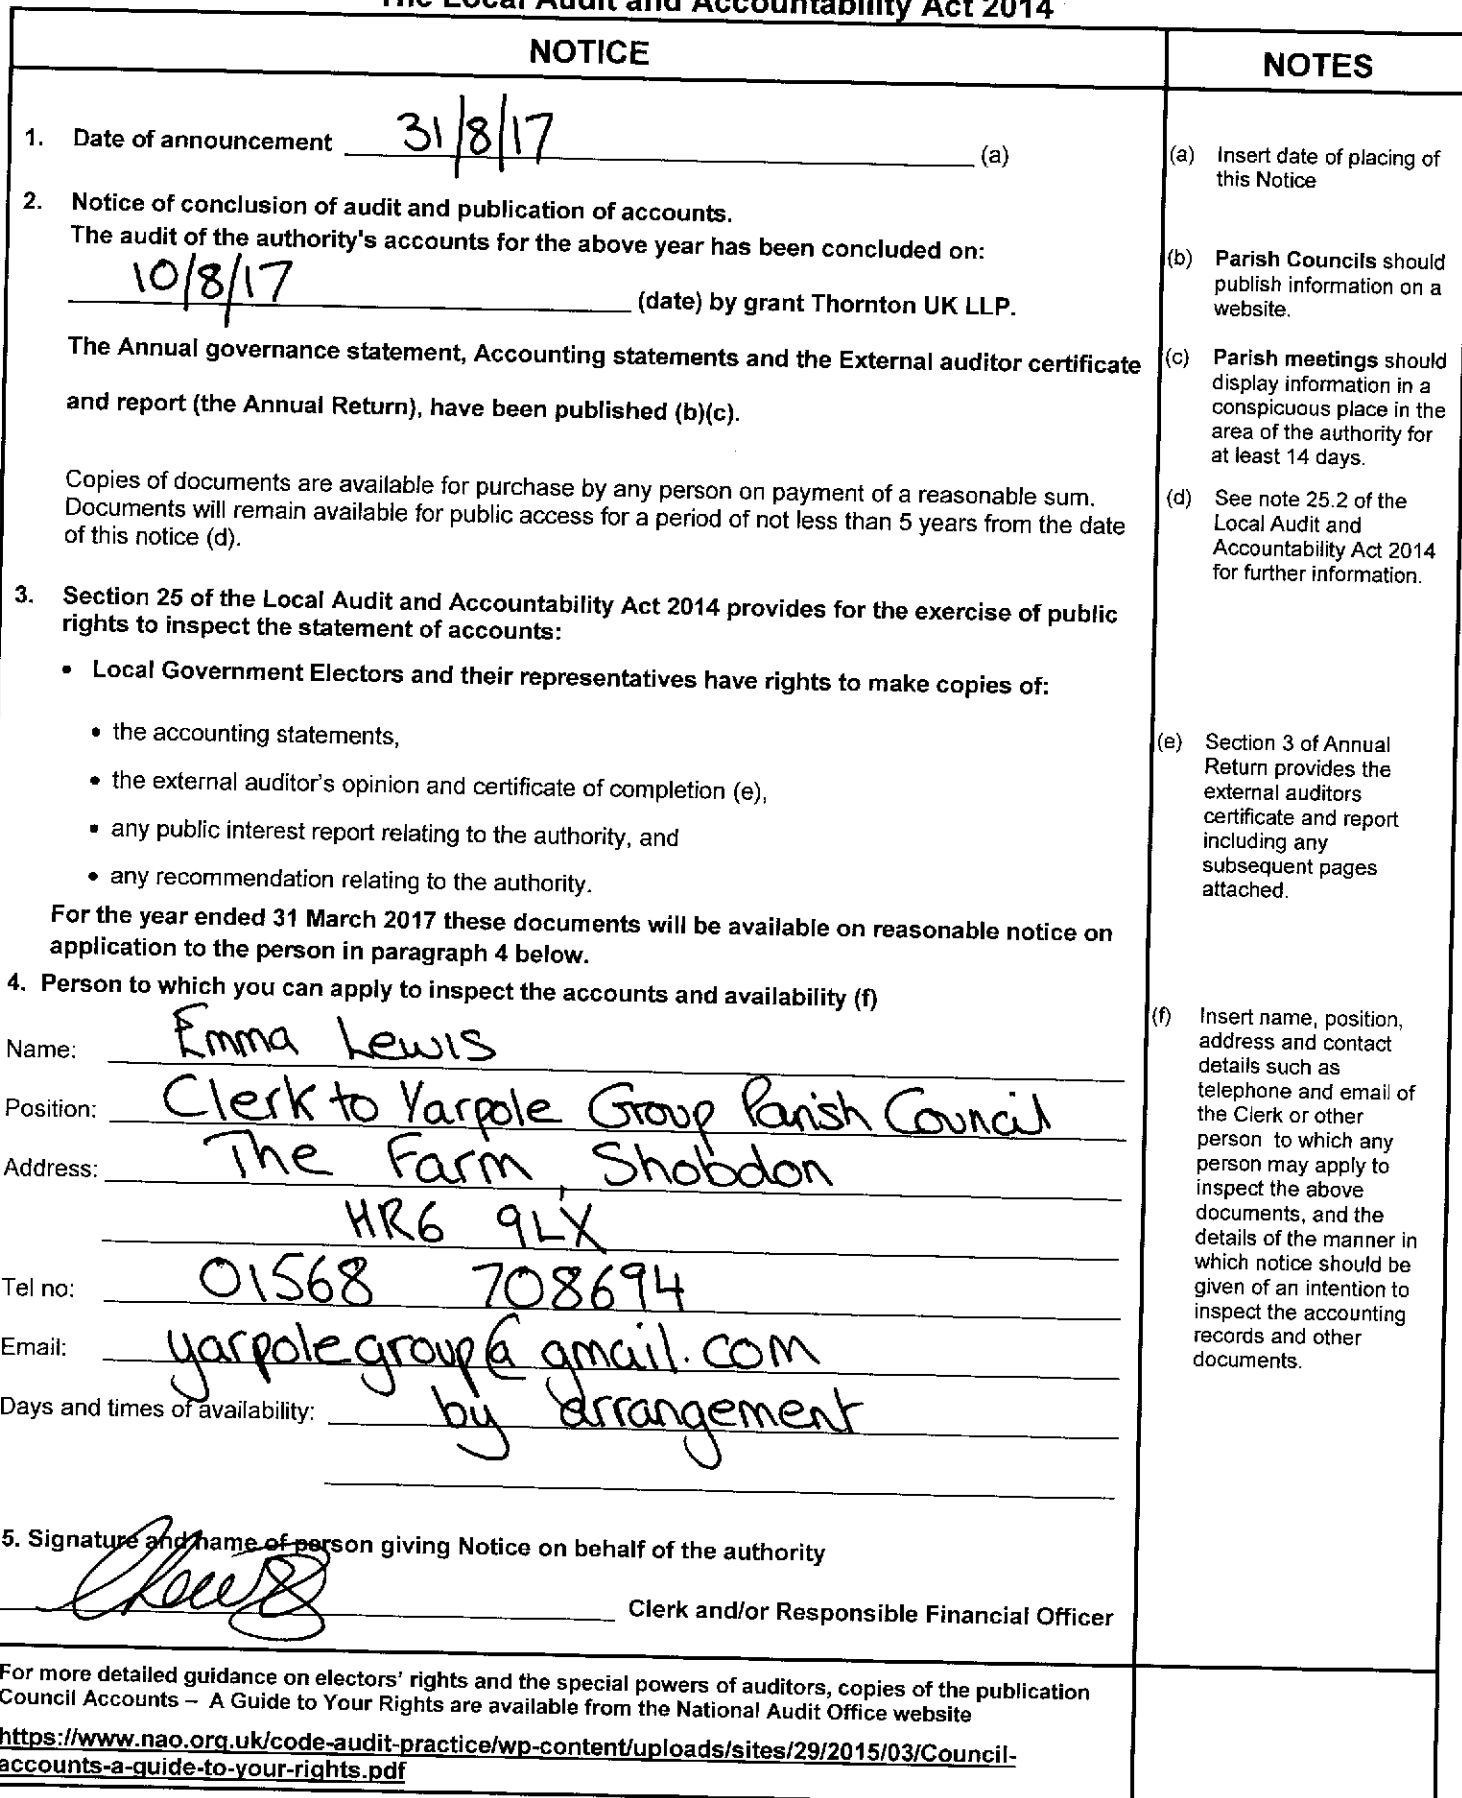 The Local Audit and Accountability Act 2014
NOTICE
1. Date of announcement 31/8/17 (a)
2. Notice of conclusion of audit and publication of accounts.
The audit of the authority's accounts for the above year has been concluded on:
10/8/17 (date) by grant Thornton UK LLP.
The Annual governance statement, Accounting statements and the External auditor certificate
and report (the Annual Return), have been published (b)(c).
Copies of documents are available for purchase by any person on payment of a reasonable sum.
Documents will remain available for public access for a period of not less than 5 years from the date
of this notice (d).
3. Section 25 of the Local Audit and Accountability Act 2014 provides for the exercise of public
rights to inspect the statement of accounts:
• Local Government Electors and their representatives have rights to make copies of:
• the accounting statements,
• the external auditor's opinion and certificate of completion (e),
• any public interest report relating to the authority, and
• any recommendation relating to the authority.
For the year ended 31 March 2017 these documents will be available on reasonable notice on
application to the person in paragraph 4 below.
4. Person to which you can apply to inspect the accounts and availability (f)
Name: Emma Lewis
Position: Clerk to Yarpole Group Parish Council
Address: The Farm, Shobdon
HR6 9LX
Tel no: 01568 708694
Email: yarpolegroup@gmail.com
Days and times of availability: by arrangement
5. Signature and name of person giving Notice on behalf of the authority
Clerk and/or Responsible Financial Officer
For more detailed guidance on electors' rights and the special powers of auditors, copies of the publication
Council Accounts – A Guide to Your Rights are available from the National Audit Office website
https://www.nao.org.uk/code-audit-practice/wp-content/uploads/sites/29/2015/03/Council-
accounts-a-guide-to-your-rights.pdf
NOTES
(a) Insert date of placing of
this Notice
(b) Parish Councils should
publish information on a
website.
(c) Parish meetings should
display information in a
conspicuous place in the
area of the authority for
at least 14 days.
(d) See note 25.2 of the
Local Audit and
Accountability Act 2014
for further information.
(e) Section 3 of Annual
Return provides the
external auditors
certificate and report
including any
subsequent pages
attached.
(f) Insert name, position,
address and contact
details such as
telephone and email of
the Clerk or other
person to which any
person may apply to
inspect the above
documents, and the
details of the manner in
which notice should be
given of an intention to
inspect the accounting
records and other
documents.